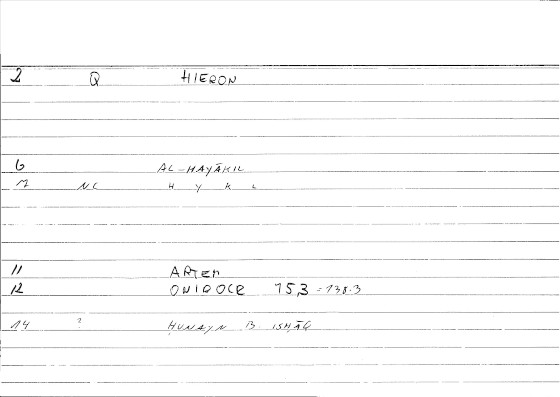 2 Q HIERON
6 AL-HAYĀKIL
12 NC H Y K L
11 ARTEM
12 ONIROCR 153 = 138.3
14 ? ḤUNAYN B. ISḤĀQ